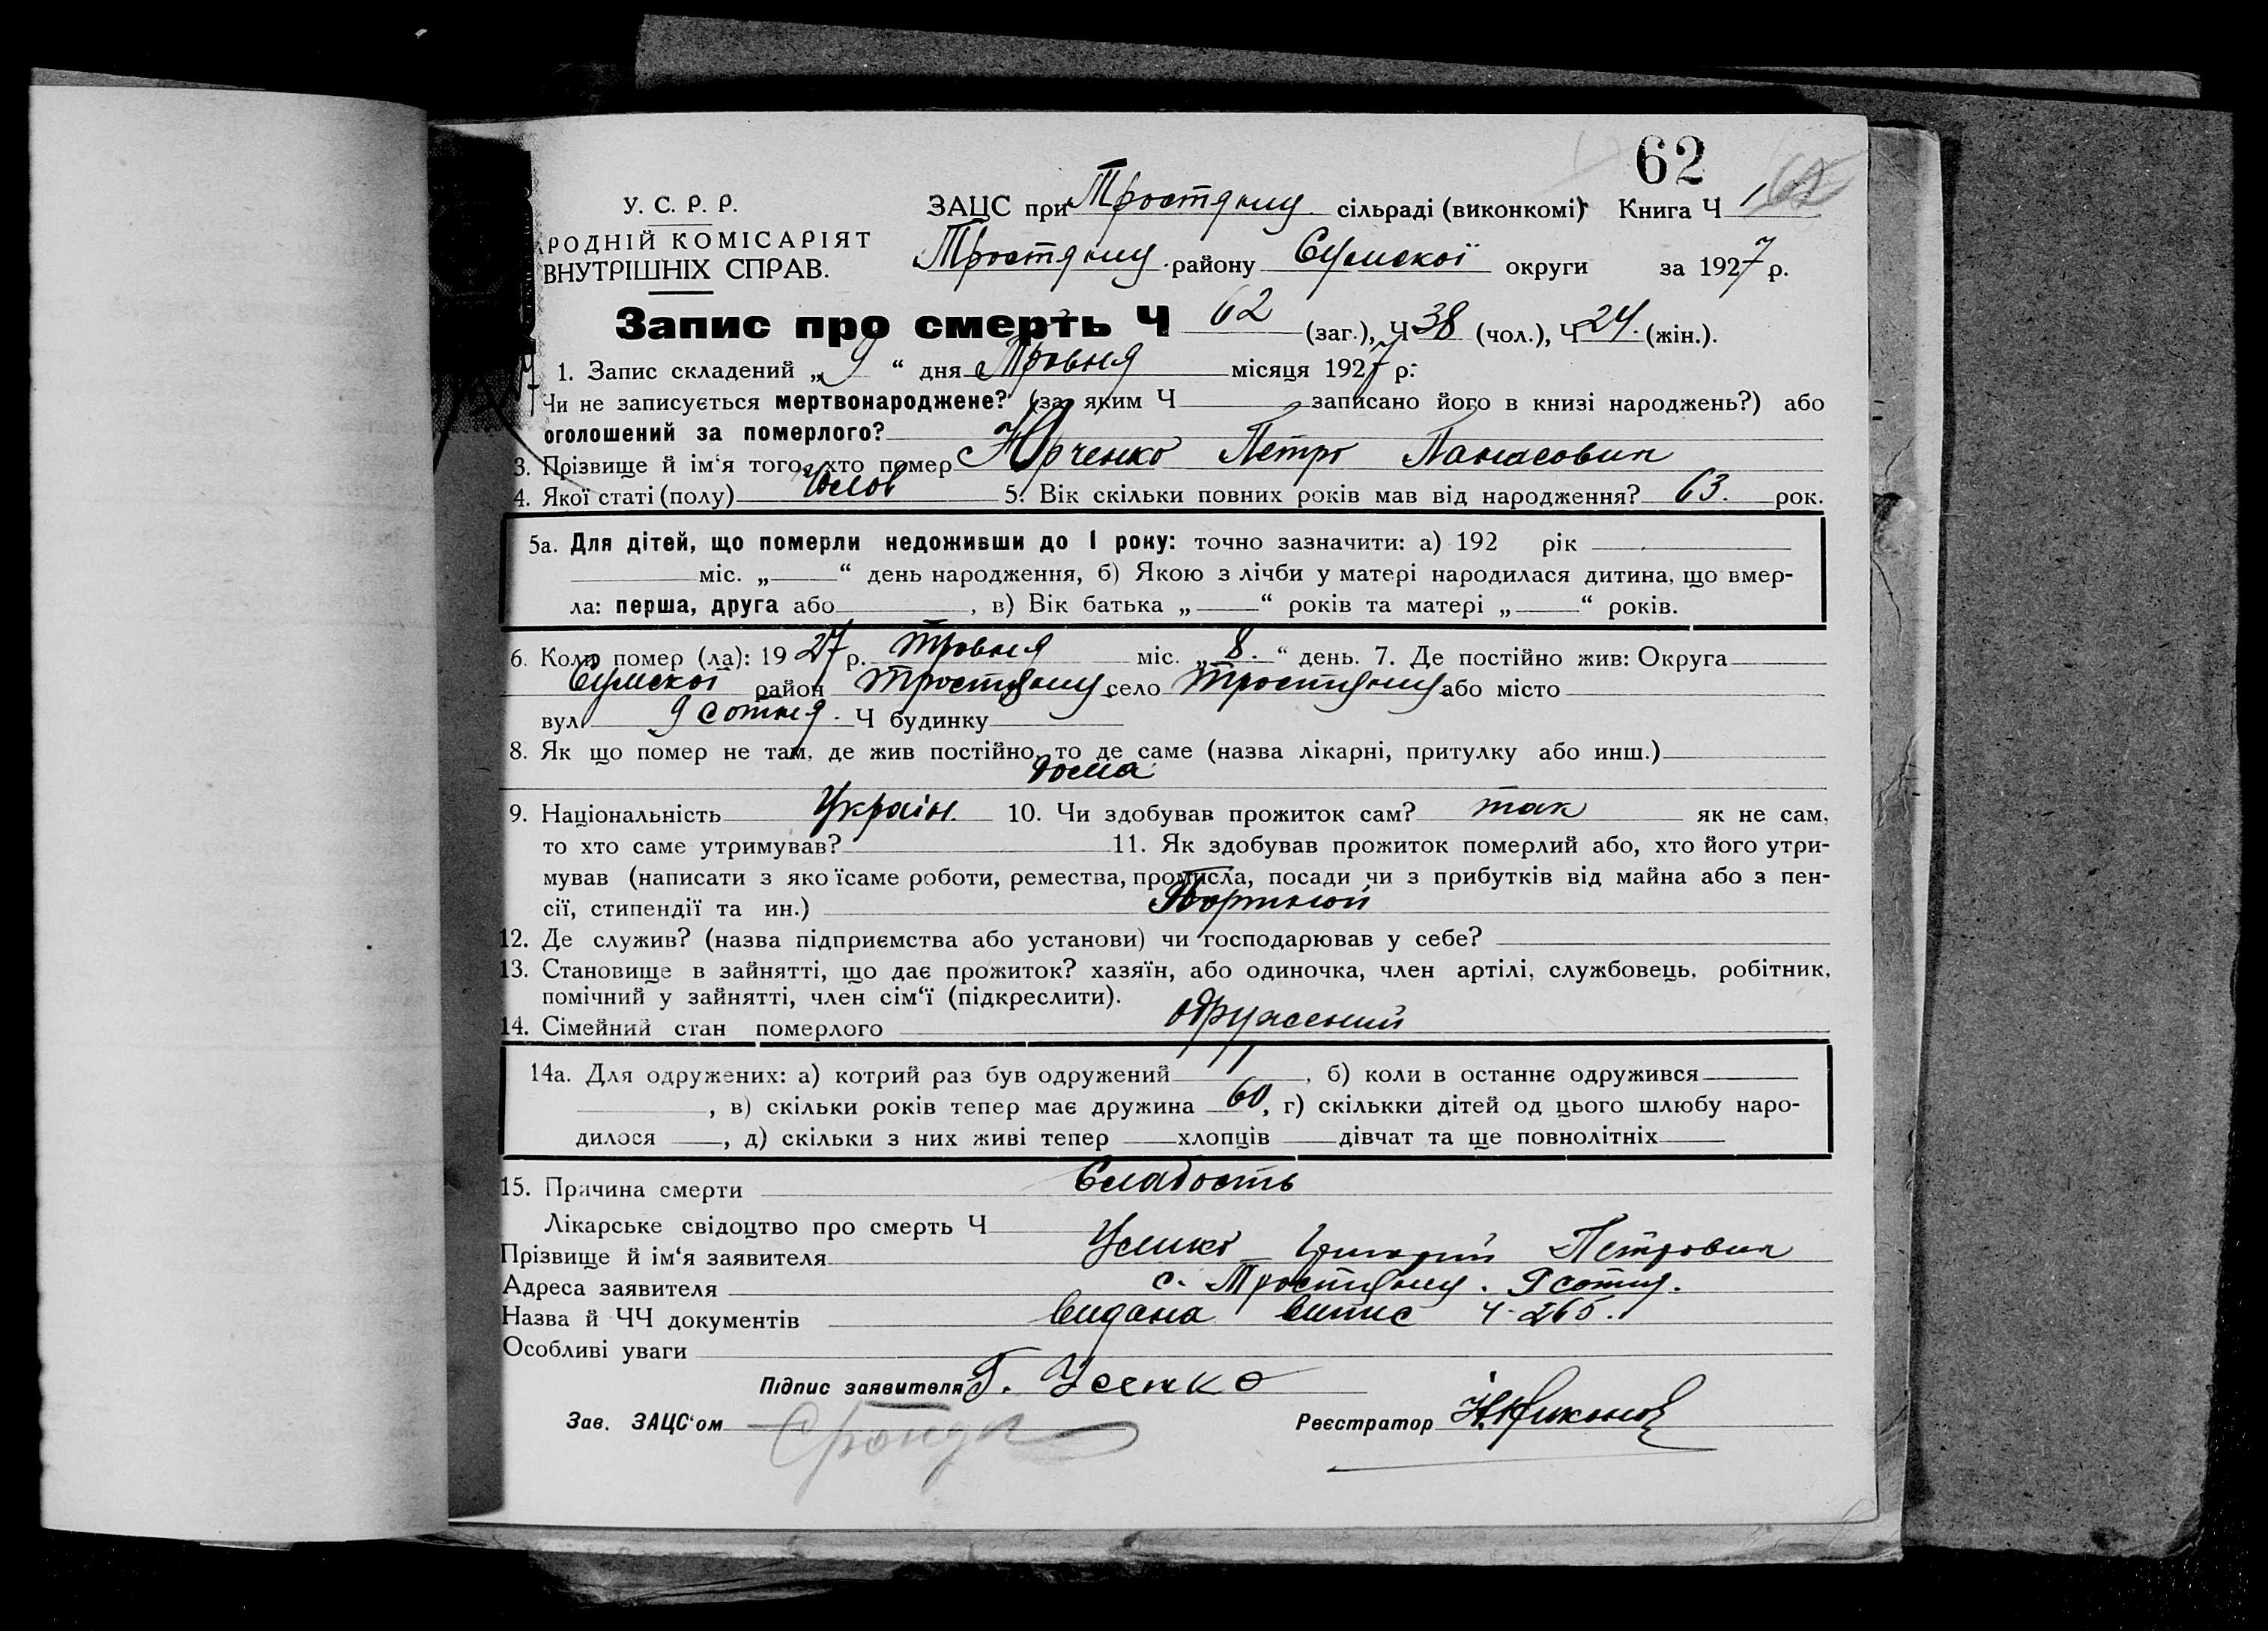 62
У. С. Р. Р.
РОДНІЙ КОМІСАРІЯТ
ВНУТРІШНІХ СПРАВ.
ЗАЦС при Тростяну сільраді (виконкомі) Книга Ч 1
Тростяну району Сумскої округи за 1927 р.
Запис про смерть Ч 62 (заг.), Ч 38 (чол.), Ч 24. (жін.).
1. Запис складений „ 9 “ дня Травня місяця 1927 р.
Чи не записується мертвонароджене? (за яким Ч записано його в книзі народжень?) або
оголошений за померлого?
3. Прізвище й ім‘я того, хто помер Юрченко Петро Панасович
4. Якої статі (полу) Чолов 5. Вік скільки повних років мав від народження? 63. рок.
5а. Для дітей, що померли недоживши до 1 року: точно зазначити: а) 192 рік
міс. „ “ день народження, б) Якою з лічби у матері народилася дитина, що вмер-
ла: перша, друга або , в) Вік батька „ “ років та матері „ “ років.
6. Коли помер (ла): 1927 р. травня міс. „ 8. “ день. 7. Де постійно жив: Округа
Сумскої район Тростяну село Тростяну або місто
вул. 9 сотня. Ч будинку
8. Як що помер не там, де жив постійно, то де саме (назва лікарні, притулку або инш.)
дома
9. Національність Україн. 10. Чи здобував прожиток сам? так як не сам,
то хто саме утримував? 11. Як здобував прожиток померлий або, хто його утри-
мував (написати з якоїсаме роботи, ремества, промисла, посади чи з прибутків від майна або з пен-
сії, стипендії та ин.) Портной
12. Де служив? (назва підприємства або установи) чи господарював у себе?
13. Становище в зайнятті, що дає прожиток? хазяїн, або одиночка, член артілі, службовець, робітник,
помічний у зайнятті, член сім‘ї (підкреслити).
14. Сімейний стан померлого одружений
14а. Для одружених: а) котрий раз був одружений 1 , б) коли в останнє одружився
, в) скільки років тепер має дружина 60 , г) скількки дітей од цього шлюбу наро-
дилося , д) скільки з них живі тепер хлопців дівчат та ще повнолітніх
15. Причина смерти Слабость
Лікарське свідоцтво про смерть Ч
Прізвище й ім‘я заявителя Усенко Григорий Петрович
Адреса заявителя с. Тростяну. 9 сотня.
Назва й ЧЧ документів видана випис ч. 265.
Особливі уваги
Підпис заявителя Г. Усенко
Зав. ЗАЦС‘ом
Реєстратор